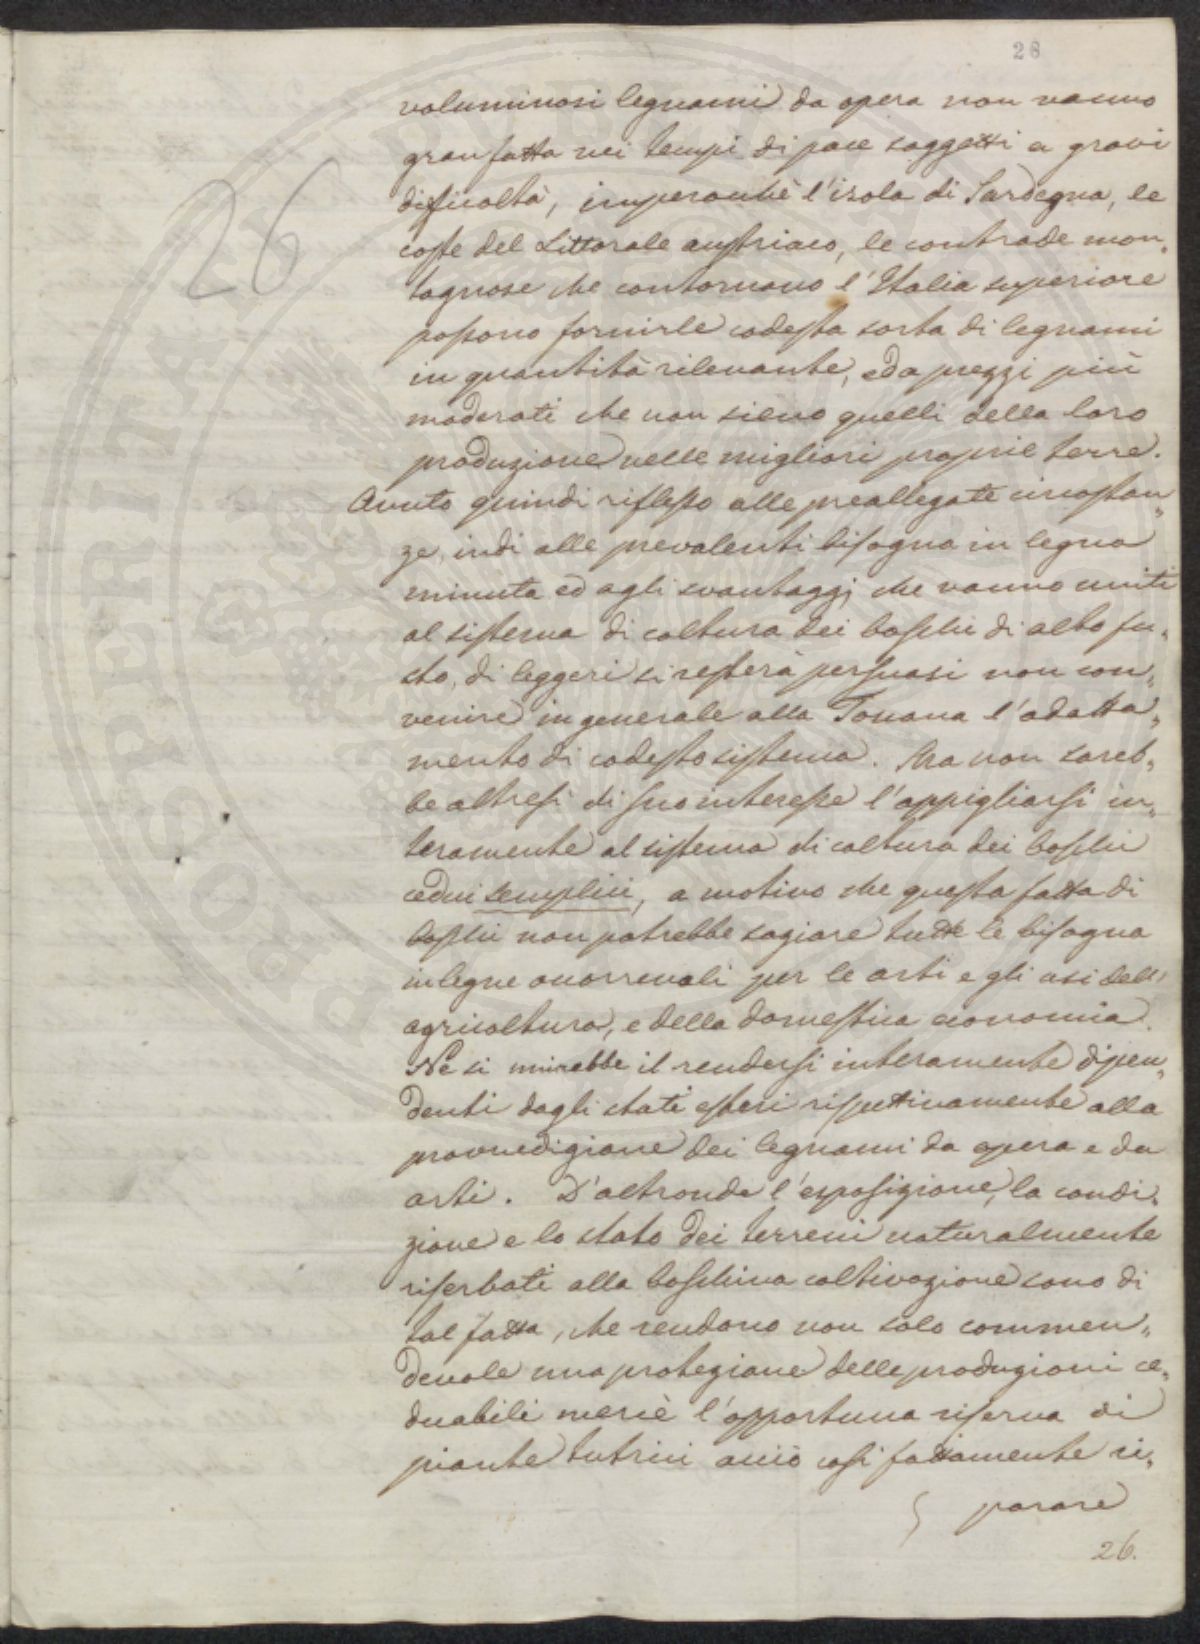 26
26
voluminosi legnami da opera non vanno
gran fatta nei tempi di pace soggetti a gravi
dificoltà, imperocchè l'isola di Sardegna, le
coste del Littorale austriaco, le contrade mon„
tagnose che contornano l'Italia superiore
possono fornirle codesta sorta di legnami
in quantità rilevante, ed a prezzi più
moderati che non sieno quelli della loro
produzione nelle migliori proprie terre.
Avuto quindi riflesso alle preallegate circostan„
ze, indi alle prevalenti bisogna in legna
minuta ed agli svantaggi che vanno uniti
al sistema di coltura dei boschi di alto fu„
sto, di leggeri si resterà persuasi non con„
venire in generale alla Toscana l'adatta„
mento di codesto sistema. Ma non sareb„
be altresì di suo interesse l'appigliarsi in„
teramente al sistema di coltura dei boschi
cedui semplici, a motivo che questa fatta di
boschi non potrebbe saziare tutte le bisogna
in legne occorrevoli per le arti e gli usi dell'
agricoltura, e della domestica economia.
Ne si mirebbe il rendersi interamente dipen„
denti dagli stati esteri rispettivamente alla
provvedigione dei legnami da opera e da
arti. D'altronde l'esposizione, la condi„
zione e lo stato dei terreni naturalmente
riserbati alla boschiva coltivazione sono di
tal fatta, che rendono non solo commen„
devole una protezione delle produzioni ce„
duabili mercè l'opportuna riserva di
piante tutrici acciò così fattamente ri„
parare
26.
PROSPERITATI PUBLICAE